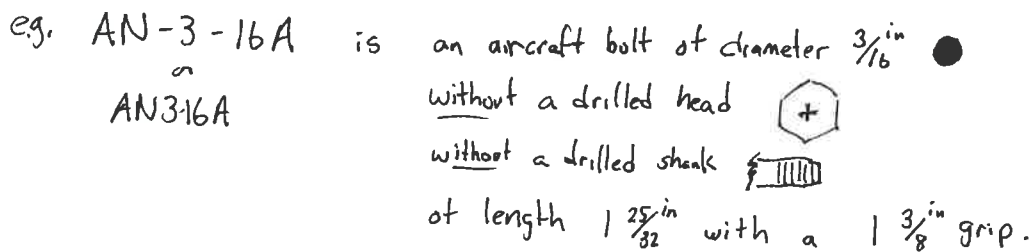 e.g. AN-3-16A is an aircraft bolt of diameter 3/16 in
or without a drilled head
AN3-16A without a drilled shank
of length 1 25/32 in with a 1 3/8 in grip.